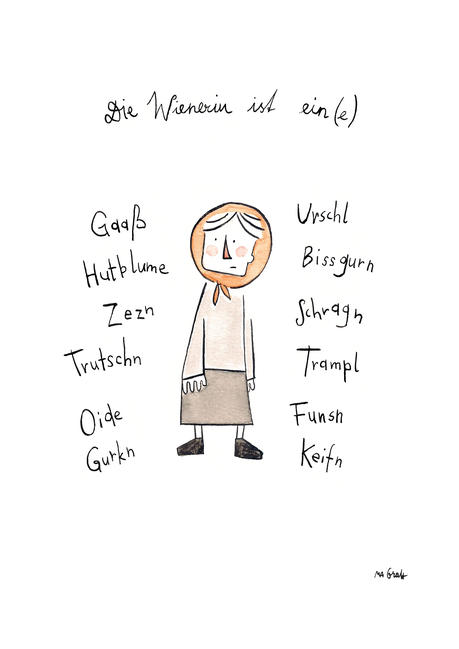 Die Wienerin ist ein(e)
Gaaß
Hutblume
Zezn
Trutschn
Oide
Gurkn
Urschl
Bissgurn
Schragn
Trampl
Funsn
Keifn